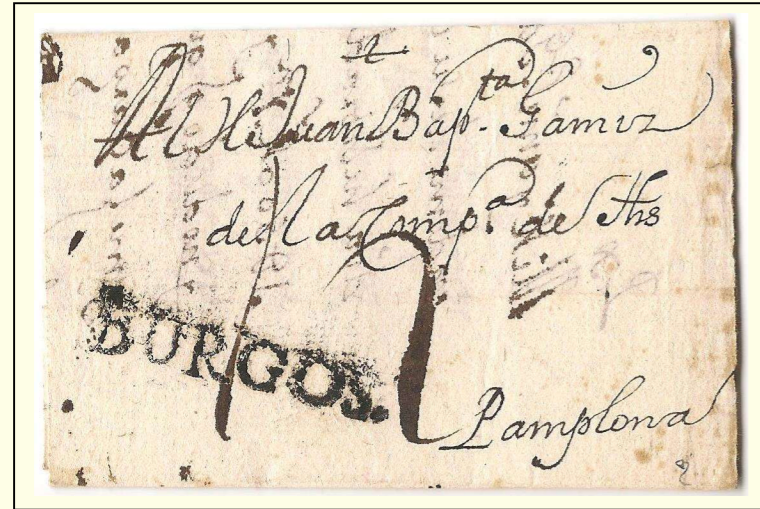 Al H. Juan Bap.ta Gamiz
de la Comp.a de Jhs
BURGOS.
12
Pamplona